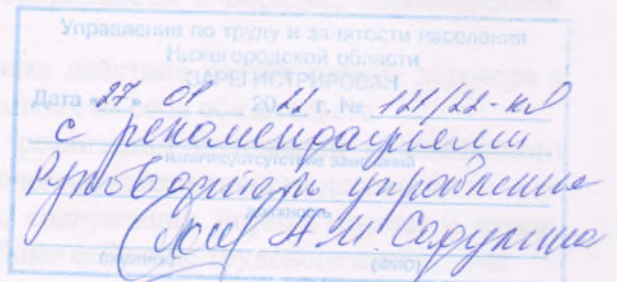 Управление по труду и занятости населения
Нижегородской области
ЗАРЕГИСТРИРОВАН
Дата «27» 01 2022 г. № 121/22-кд
с рекомендациями
наличие/отсутствие замечаний
Руководитель управления
должность
А.И. Садулина
(подпись) (ФИО)